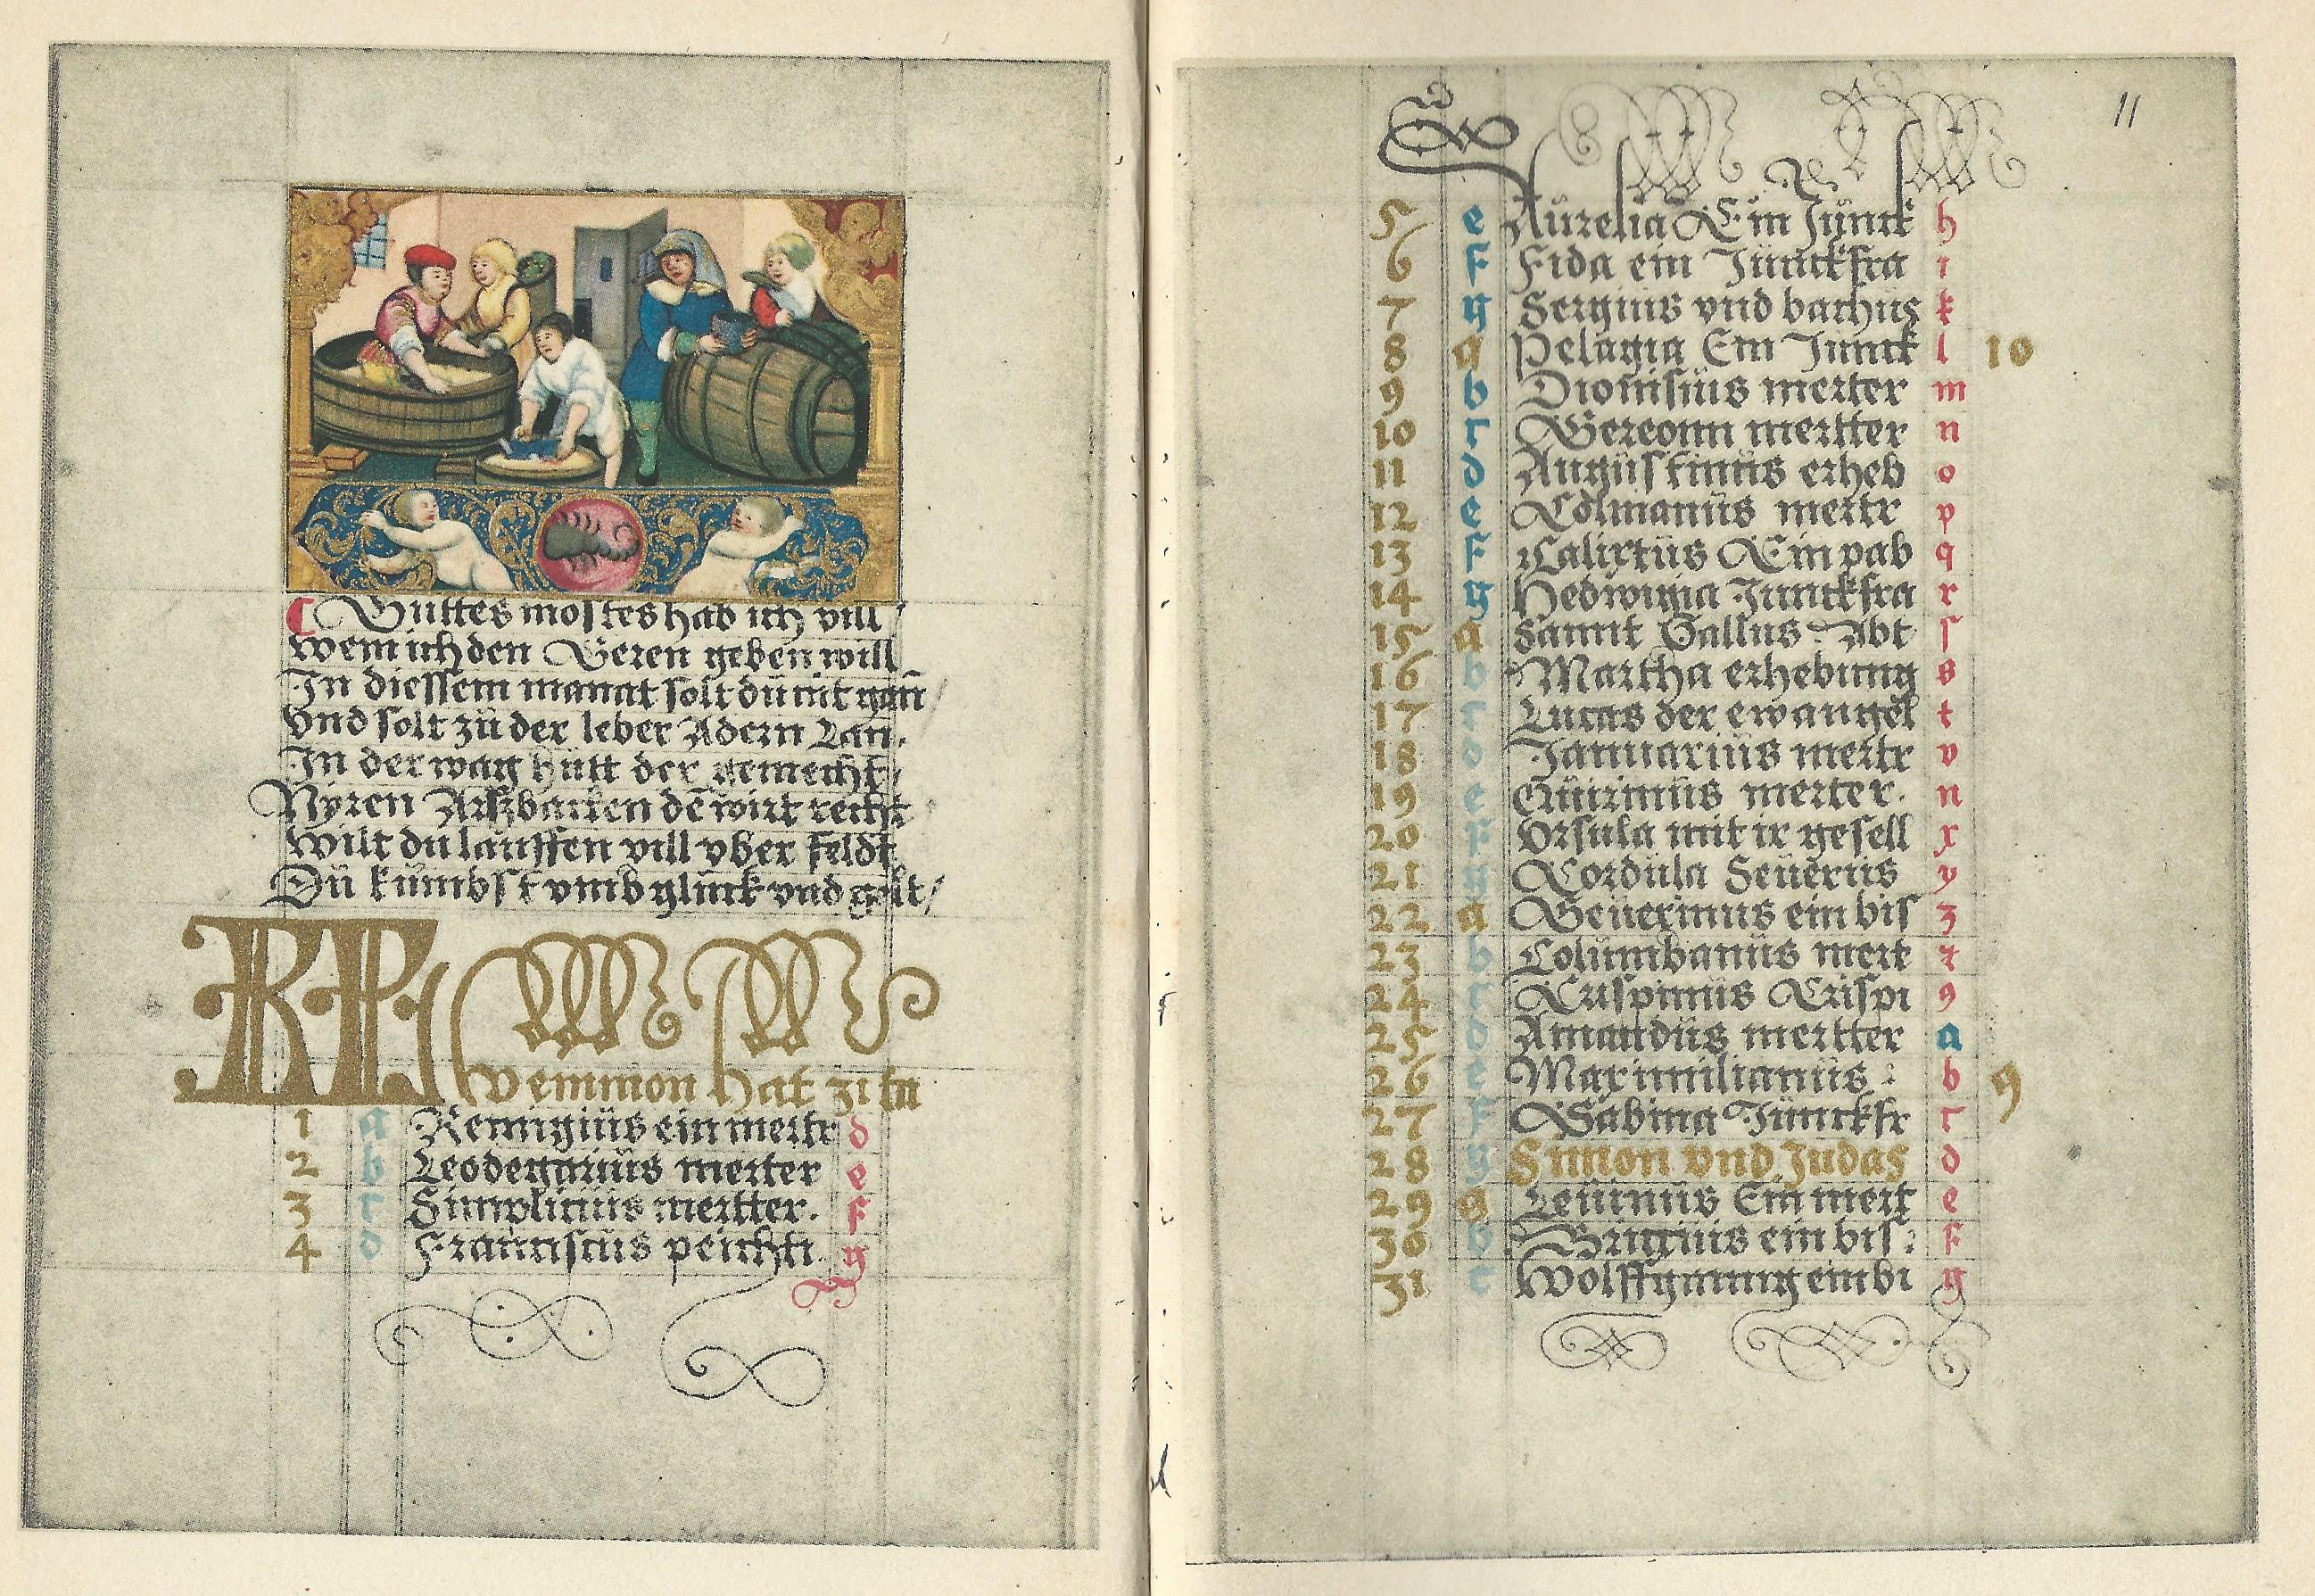 Guttes mostes hab ich vill /
wem ich den Geren geben will
In diessem manat solt du nit gan /
vnd solt zu der leber Adern Lan.
In der wag hütt der gemecht /
Nyren Arszbacken de wirt recht
wilt du lauffen vill vber feldt
Dü kümbst vmb glück vnd gelt /
KL
Wemmon hat
1 a Remigius ein mertr d
2 b Leodegarius merter e
3 c Simplicius mertter. f
4 d Franciscus peichti g
11
5 e Aurelia Ein Junck h
6 f Fida ein Junckfra i
7 g Sergius vnd bachus k
8 a Pelagia Ein Junck l 10
9 b Dionisius merter m
10 c Gereonn mertter n
11 d Augustinus erheb o
12 e Colmanus mertr p
13 f Calixtus Ein pab q
14 g Hedwigia Junckfra r
15 a Sannt Gallus Abt ſ
16 b Martha erhebung s
17 c Lucas der ewangel t
18 d Januarius mertr v
19 e Quirinus merter.
20 f Vrsula mit ir gesell x
21 g Cordula Seuerus y
22 a Seuerinus ein bis z
23 b Columbanus mert
24 c Crispinus Crispi 9
25 d Amandus mertter a
26 e Maximilianus : b 9
27 f Sabina Junckfr c
28 g Simon vnd Judas d
29 a Ein mert e
30 b ein bis : f
31 c Wolffganng ein bi g